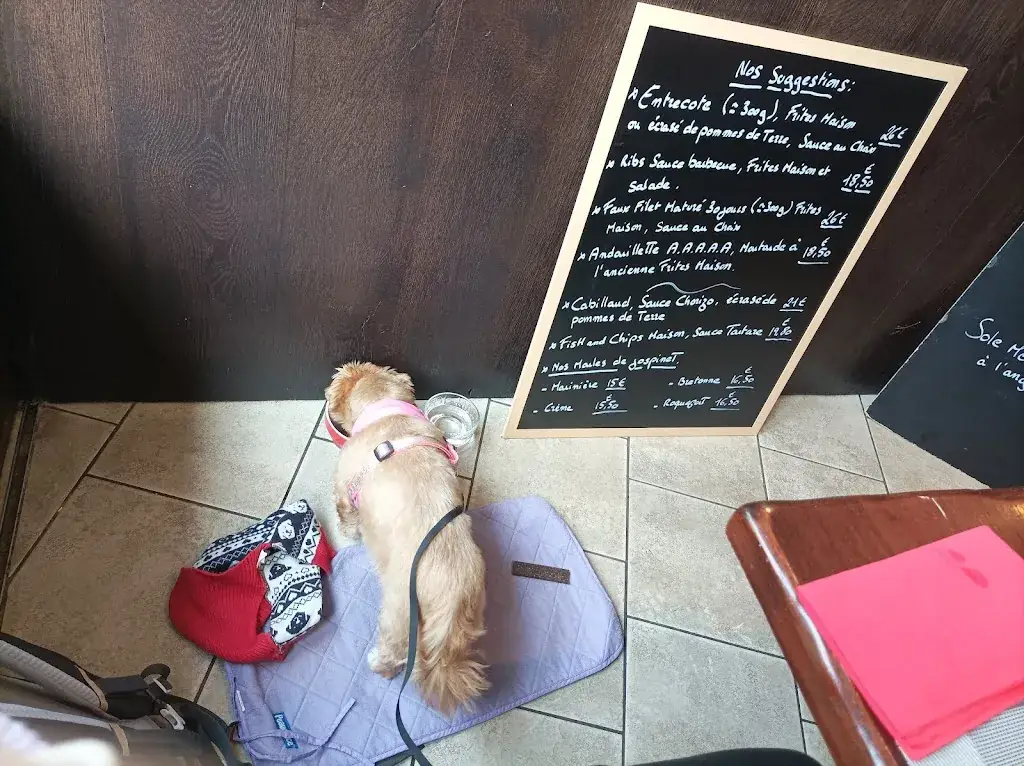 Nos Suggestions:
* Entrecote (≃300g), Frites Maison
ou écrasé de pommes de Terre, Sauce au Choix 26€
* Ribs Sauce barbecue, Frites Maison et
Salade. 18,50€
* Faux Filet Maturé 30 jours (≃300g) Frites
Maison, Sauce au Choix 26€
* Andouillette A.A.A.A.A, Moutarde à
l'ancienne Frites Maison. 18,50€
* Cabillaud, Sauce Chorizo, écrasé de
pommes de Terre 21€
* Fish and Chips Maison, Sauce Tartare 19,50€
* Nos Moules de
- Marinière 15€ - Bretonne 16,50€
- Crème 15,50€ - Roquefort 16,50€
Sole
à l'